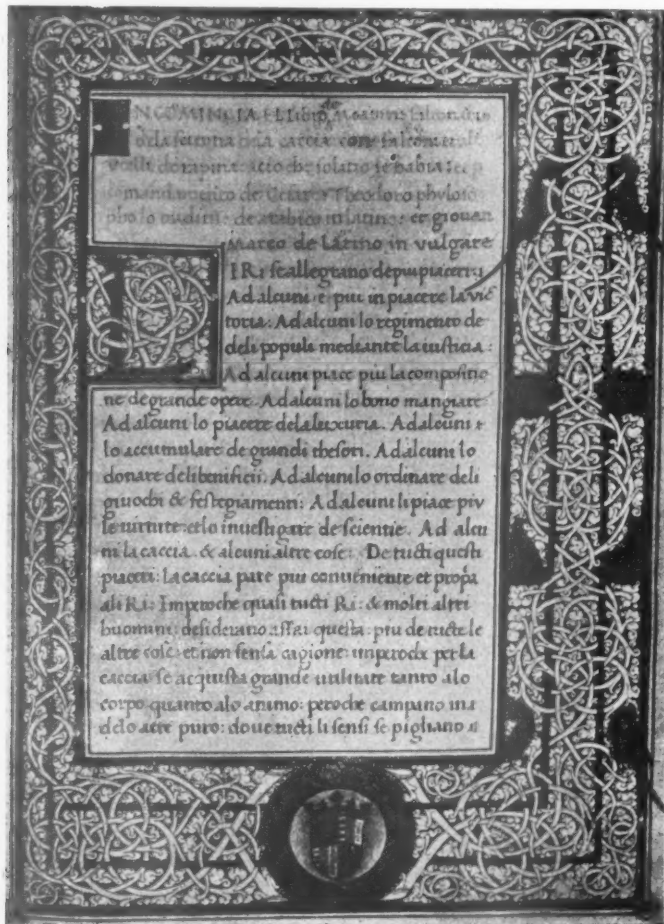 INCOMINCIA EL libro de Moamyn falconario
de la scientia de la caccia: con li falconi et alt
ucelli de rapina: accio che solatio se habia: et p
comandamento de Cesare Theodoro phyloso
pho lo tradusse de arabico in latino: et giouan
Marco de Latino in vulgare
LI Ri se allegrano de piu piaceri:
Ad alcuni e piu in piacere la vic
toria: Ad alcuni lo regimento de
deli populi mediante la iusticia:
Ad alcuni piace piu la compositio
ne de grande opere. Ad alcuni lo bono mangiare
Ad alcuni lo piacere dela luxuria. Ad alcuni e
lo accumulare de grandi thesori. Ad alcuni lo
donare deli benificii. Ad alcuni lo ordinare deli
giuochi & festegiamenti: Ad alcuni li piace piv
le uirtute: et lo inuestigare de scientie. Ad alcu
ni la caccia. & alcuni altre cose: De tucti questi
piaceri: la caccia pare piu conueniente et propia
ali Ri: Imperoche quasi tucti Ri: & molti altri
huomini: desiderano assai questa: piu de tucte le
altre cose: et non senza cagione: imperoche per la
caccia se acquista grande utilitate tanto alo
corpo quanto alo animo: peroche campano ina
delo aere puro: doue tucti li sensi se pigliano